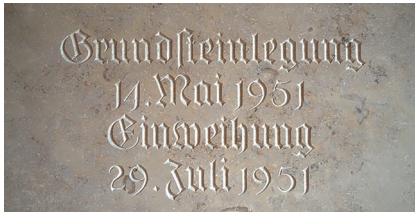 Grundſteinlegung
14. Mai 1951
Einweihung
29. Juli 1951